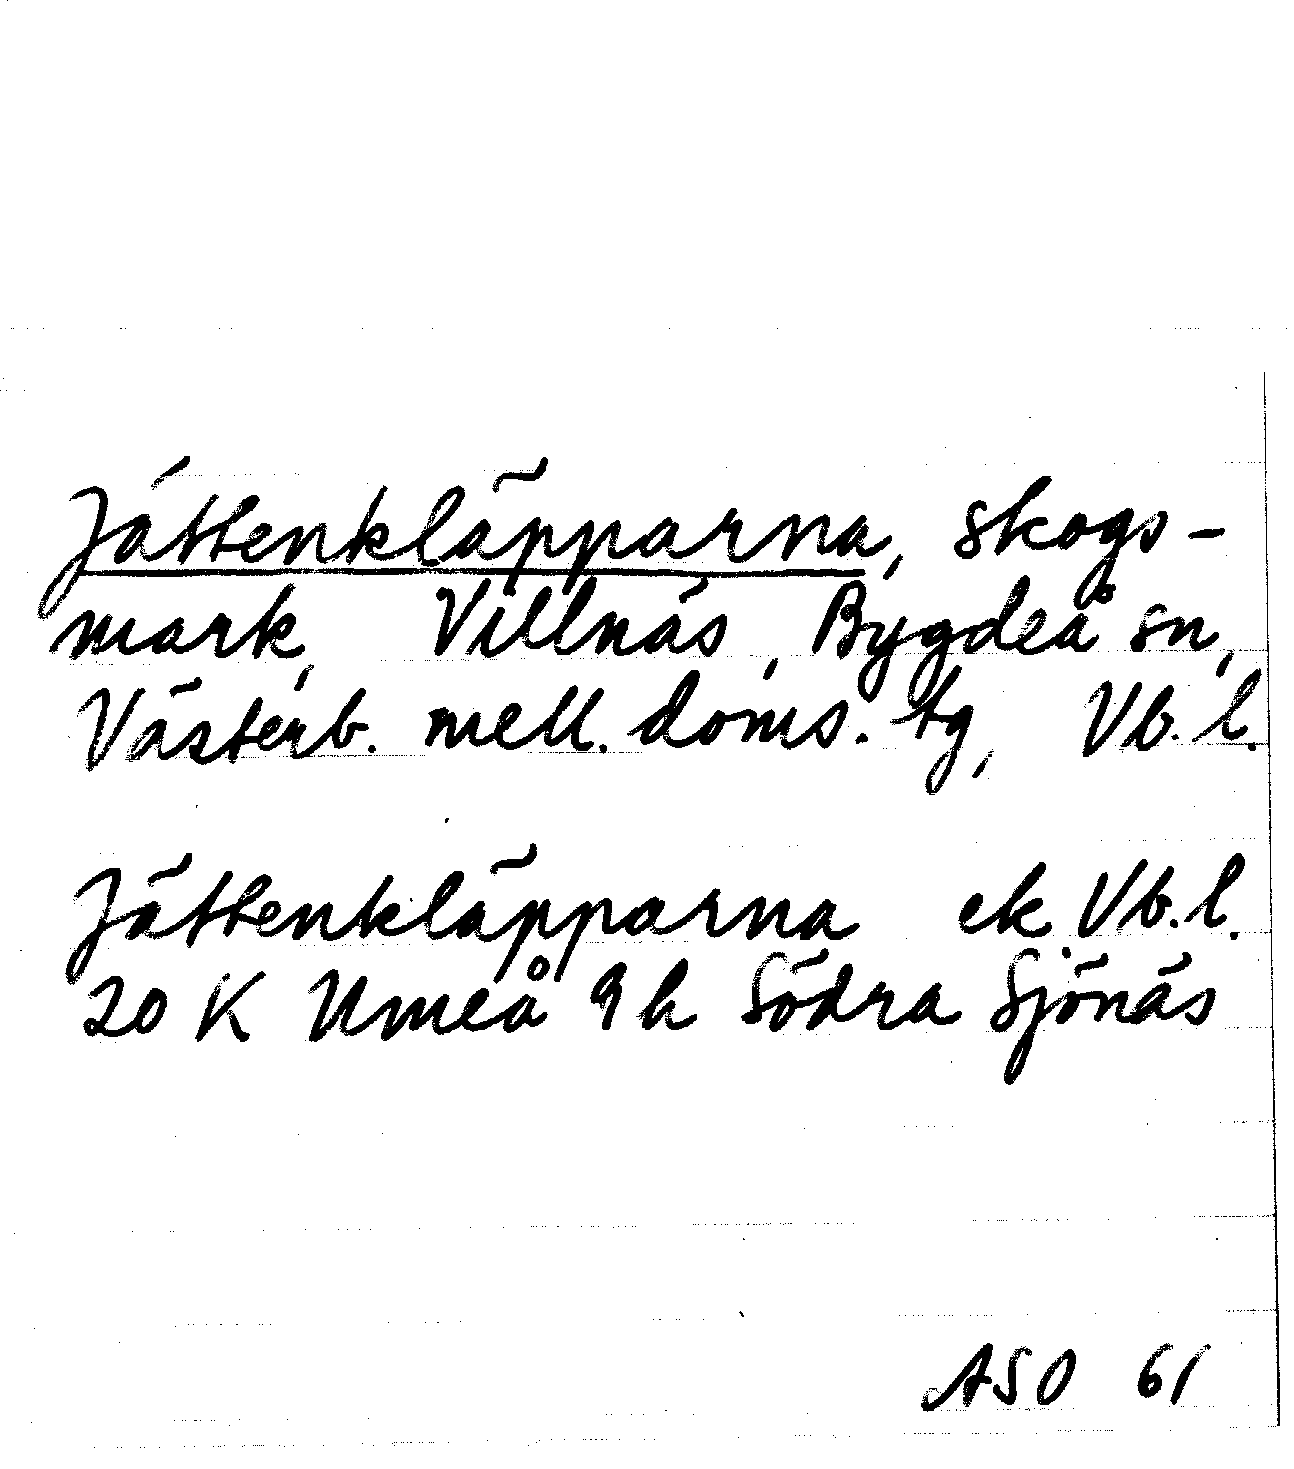 Jättenkläpparna, skogs-
mark, Villnäs, Bygdeå sn,
Västerb. mell. doms. tg, Vb. l.
Jättenkläpparna ek. Vb. l.
20 K Umeå 9 h Södra Sjönäs
ASO 61